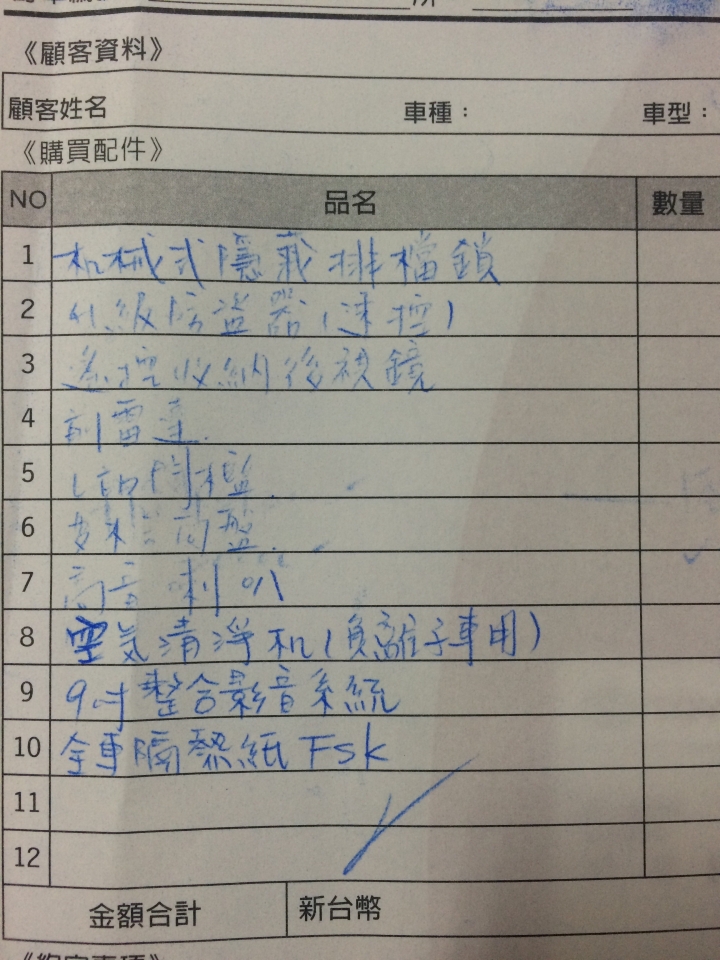 《顧客資料》
顧客姓名 車種： 車型：
《購買配件》
NO 品名 數量
1 机械式隱藏排檔鎖
2 升級防盜器(速控)
3 遙控收納後視鏡
4 前雷達.
5 LED門檻.
6
7 高音喇叭
8 空気清淨机(負離子車用)
9 9吋整合影音系統
10 全車隔熱紙 Fsk
11
12
金額合計 新台幣